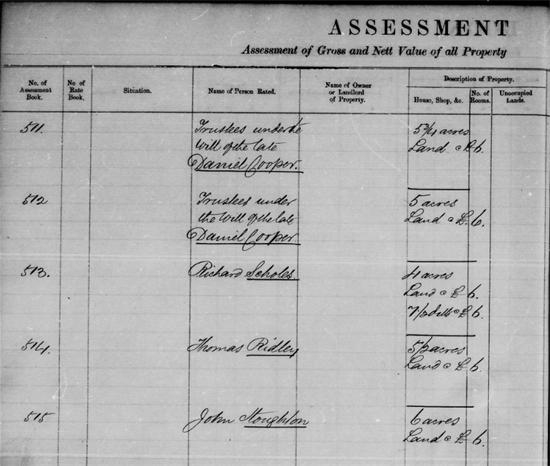 ASSESSMENT
Assessment of Gross and Nett Value of all Property
No. of Assessment Book.
No of Rate Book.
Situation.
Name of Person Rated.
Name of Owner or Landlord of Property.
Description of Property.
House, Shop, &c.
No. of Rooms.
Unoccupied Lands.
511.
Trustees under the
Will of the late
Daniel Cooper.
acres
Land
512
Trustees under
the Will of the late
Daniel Cooper.
5 acres
Land
513.
Richard Scholes
4 acres
Land
514.
Thomas Ridley
acres
Land
515
John Stoughton
6 acres
Land